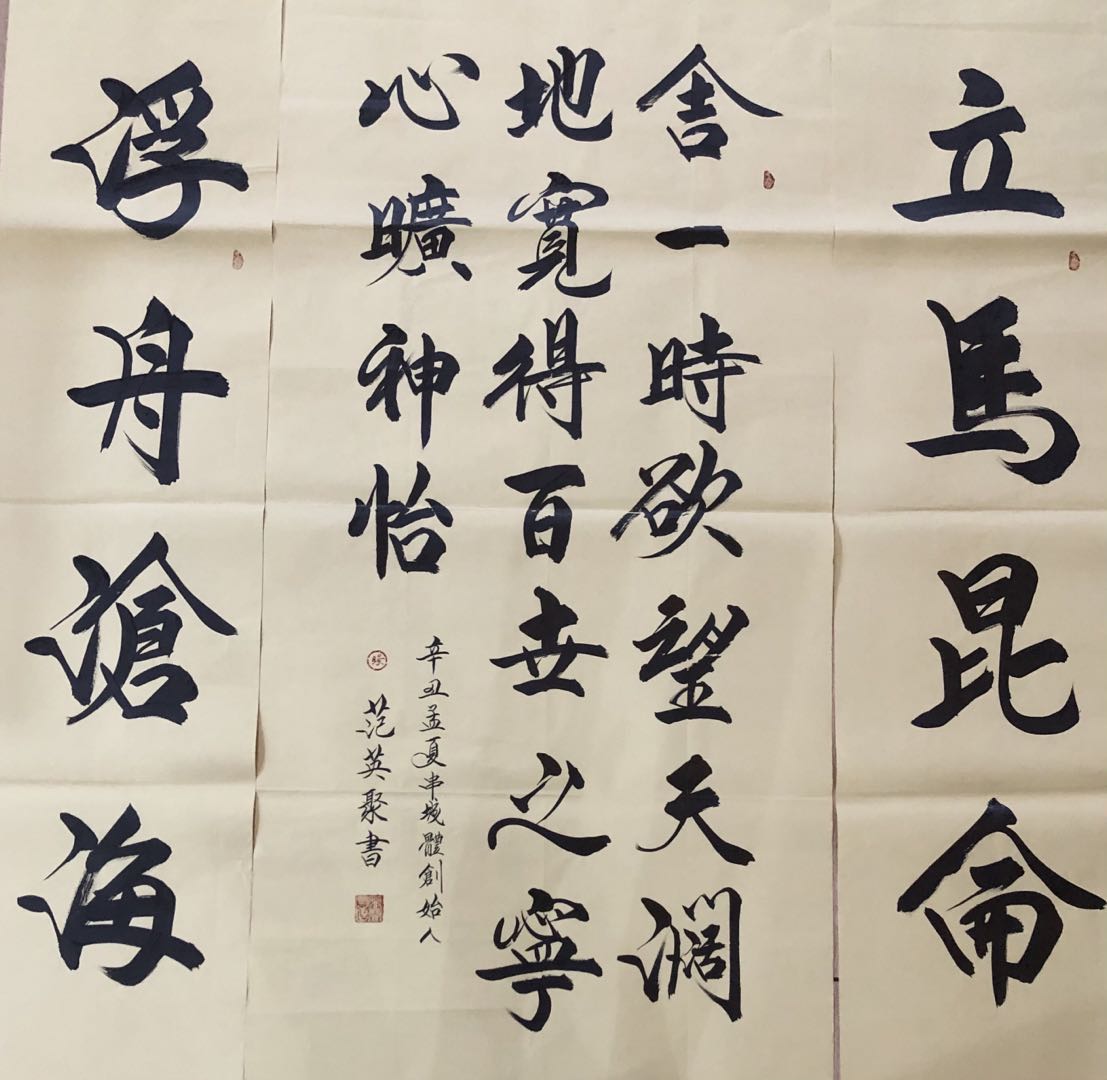 立馬昆侖
舍一時欲望天濶
地寬得百世之寧
心曠神怡
辛丑孟夏串城體創始人
范英聚書
浮舟滄海